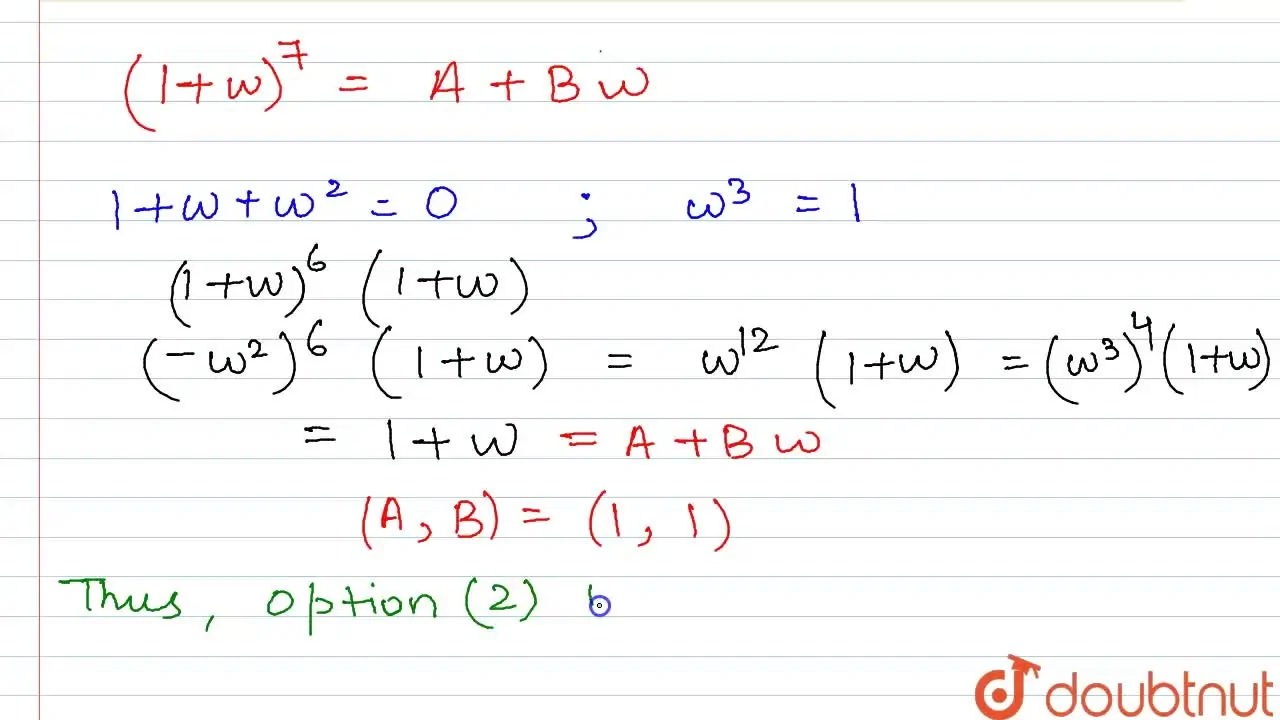 (1+w)⁷ = A + B w
1+w+w² = 0 ; w³ = 1
(1+w)⁶ (1+w)
(-w²)⁶ (1+w) = w¹² (1+w) = (w³)⁴(1+w)
= 1+w = A + B w
(A, B) = (1, 1)
Thus, option (2)
doubtnut